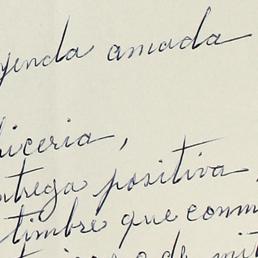 yenda amada
hiceria,
ntrega positiva
timbre que conm
de mit